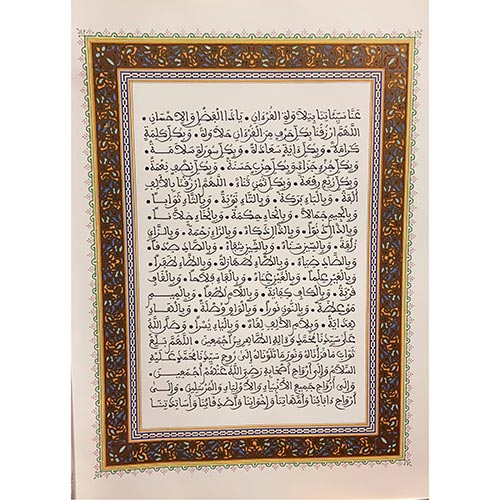 عَنَّا سَيِّئَاتِنَا بِتِلَاوَةِ الْقُرْءَانِ • يَا ذَا الْفَضْلِ وَالْإِحْسَانِ •
اللَّهُمَّ ارْزُقْنَا بِكُلِّ حَرْفٍ مِنَ الْقُرْءَانِ حَلَاوَةً • وَبِكُلِّ كَلِمَةٍ
كَرَامَةً • وَبِكُلِّ ءَايَةٍ سَعَادَةً • وَبِكُلِّ سُورَةٍ سَلَامَةً •
وَبِكُلِّ جُزْءٍ جَزَاءً • وَبِكُلِّ حِزْبٍ حَسَنَةً • وَبِكُلِّ نِصْفٍ نِعْمَةً •
وَبِكُلِّ رُبُعٍ رِفْعَةً • وَبِكُلِّ ثُمُنٍ ثَنَاءً • اللَّهُمَّ ارْزُقْنَا بِالْأَلِفِ
أُلْفَةً • وَبِالْبَاءِ بَرَكَةً • وَبِالتَّاءِ تَوْبَةً • وَبِالثَّاءِ ثَوَابًا •
وَبِالْجِيمِ جَمَالًا • وَبِالْحَاءِ حِكْمَةً • وَبِالْخَاءِ خِلَافًا •
وَبِالدَّالِ دُنُوًّا • وَبِالذَّالِ ذَكَاءً • وَبِالرَّاءِ رَحْمَةً • وَبِالزَّاءِ
زُلْفَةً • وَبِالسِّينِ سَنَاءً • وَبِالشِّينِ شِفَاءً • وَبِالصَّادِ صِدْقًا •
وَبِالضَّادِ ضِيَاءً • وَبِالطَّاءِ طَهَارَةً • وَبِالظَّاءِ ظَفَرًا •
وَبِالْعَيْنِ عِلْمًا • وَبِالْغَيْنِ غِنَاءً • وَبِالْفَاءِ فَلَاحًا • وَبِالْقَافِ
قُرْبَةً • وَبِالْكَافِ كِفَايَةً • وَبِاللَّامِ لُطْفًا • وَبِالْمِيمِ
مَوْعِظَةً • وَبِالنُّونِ نُورًا • وَبِالْوَاوِ وُصْلَةً • وَبِالْهَاءِ
هِدَايَةً • وَبِلَامِ الْأَلِفِ لِقَاءً • وَبِالْيَاءِ يُسْرًا • وَصَلَّى اللَّهُ
عَلَى سَيِّدِنَا مُحَمَّدٍ وَءَالِهِ الطَّاهِرِينَ أَجْمَعِينَ • اللَّهُمَّ بَلِّغْ
ثَوَابَ مَا قَرَأْنَاهُ وَنُورَ مَا تَلَوْنَاهُ إِلَى رُوحِ سَيِّدِنَا مُحَمَّدٍ عَلَيْهِ
السَّلَامُ وَإِلَى أَرْوَاحِ أَصْحَابِهِ رَضِيَ اللَّهُ عَنْهُمْ أَجْمَعِينَ •
وَإِلَى أَرْوَاحِ جَمِيعِ الْأَنْبِيَاءِ وَالْأَوْلِيَاءِ وَالْمُرْسَلِينَ • وَإِلَى
أَرْوَاحِ ءَابَائِنَا وَأُمَّهَاتِنَا وَإِخْوَانِنَا وَأَصْدِقَائِنَا وَأَسَاتِذَتِنَا